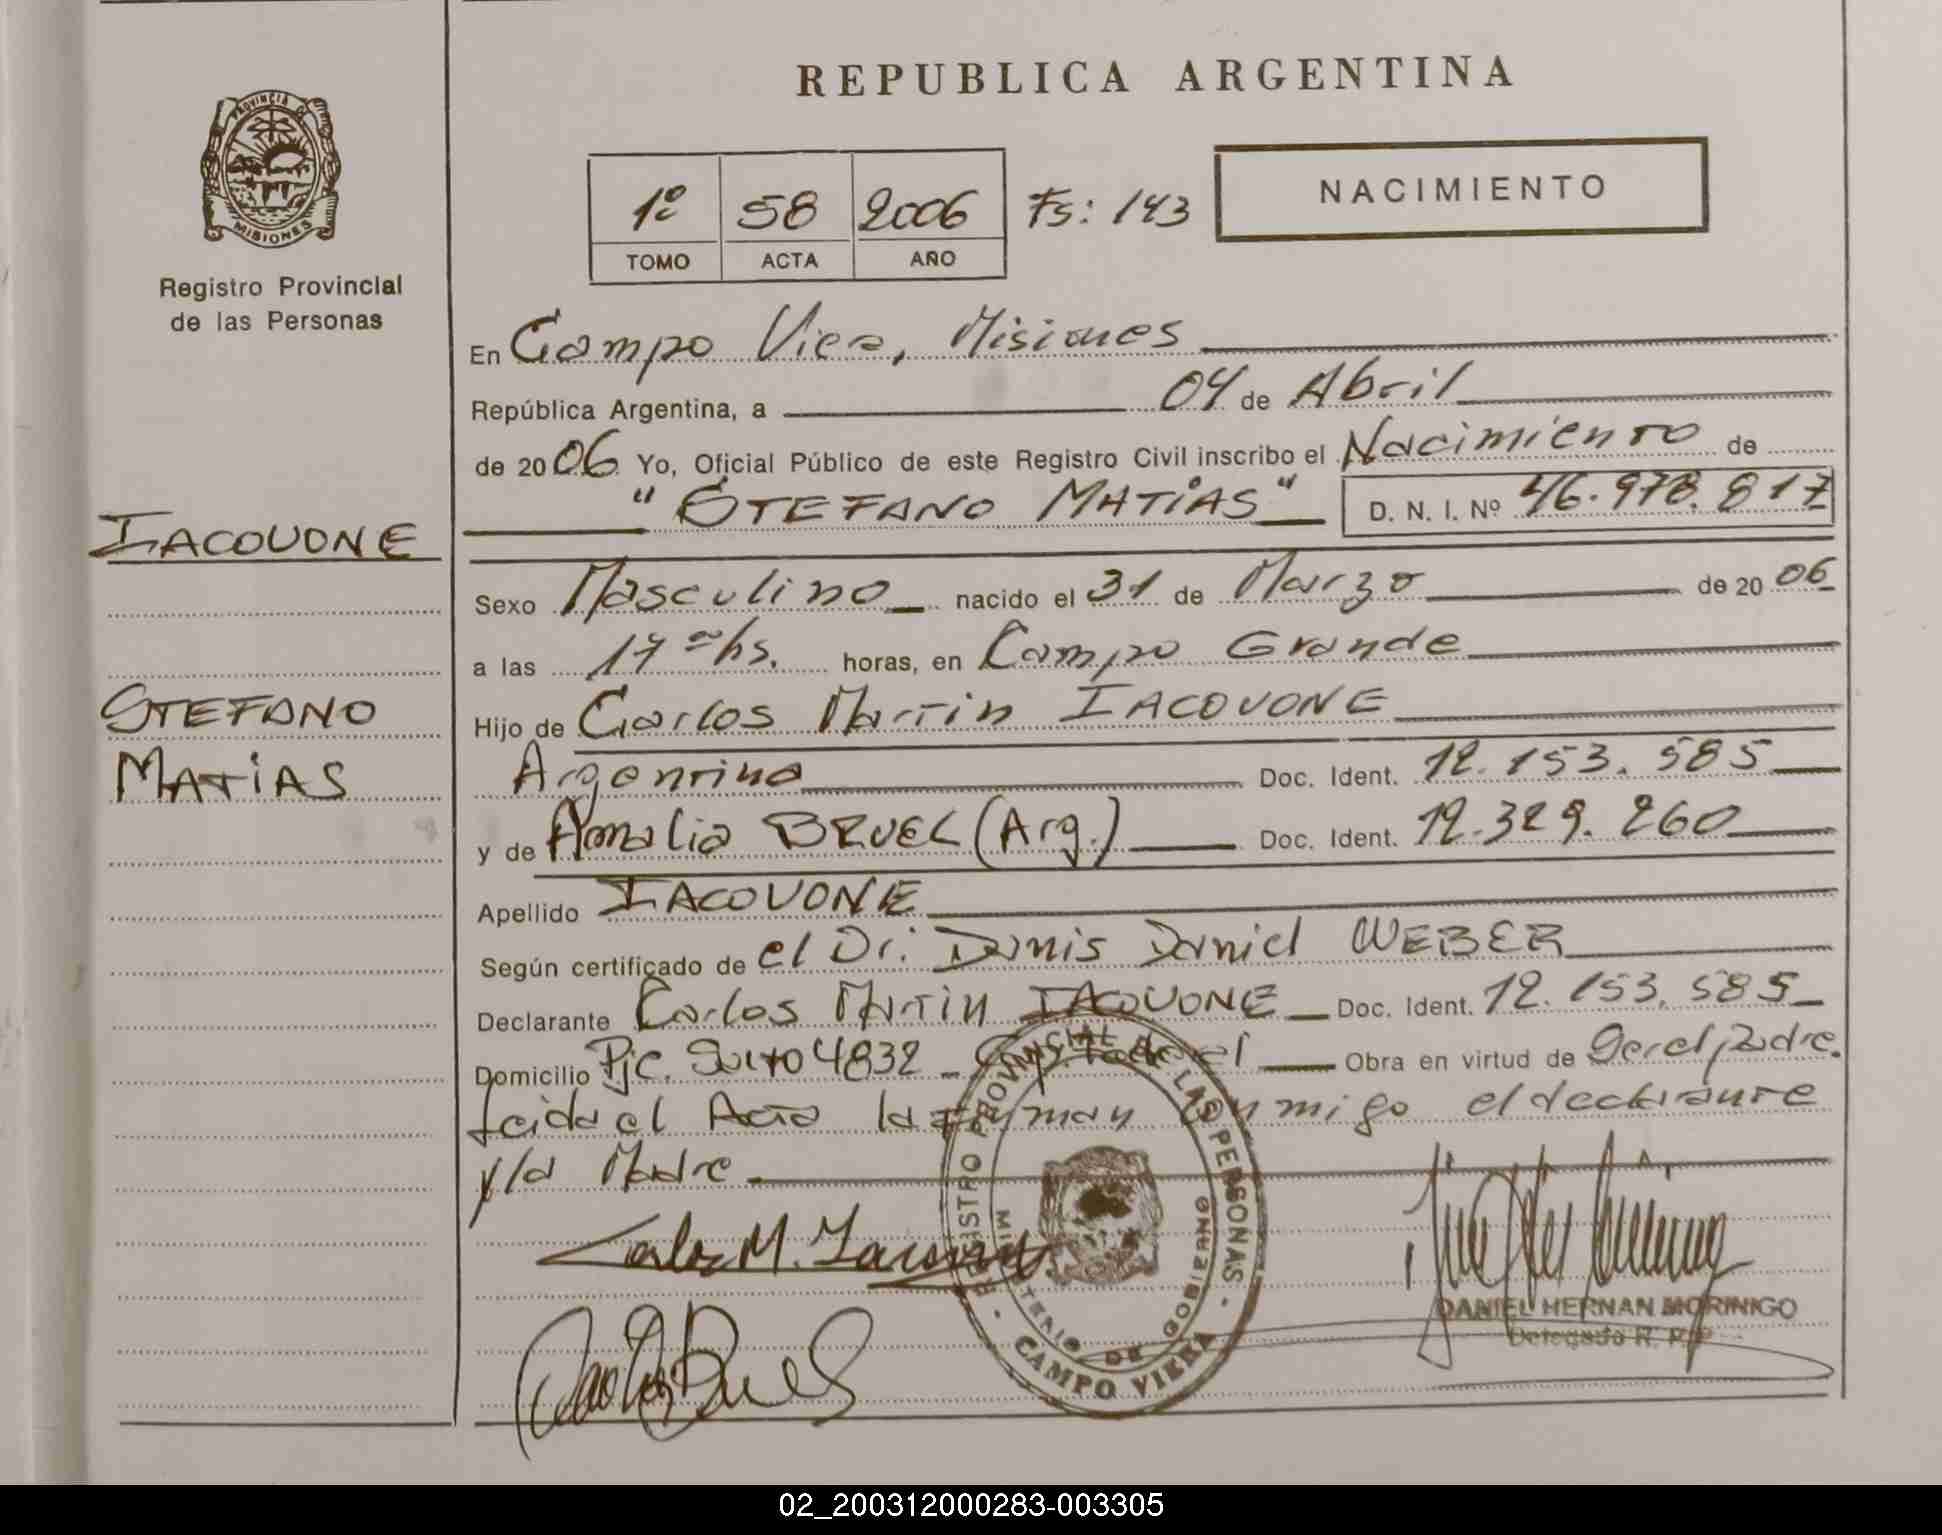 REPUBLICA ARGENTINA
PROVINCIA DE
MISIONES
Registro Provincial
de las Personas
1º 58 2006 Fs: 143
TOMO ACTA AÑO
NACIMIENTO
En Campo Viera, Misiones
República Argentina, a 04 de Abril
de 2006 Yo, Oficial Público de este Registro Civil inscribo el Nacimiento de
"STEFANO MATIAS" D. N. I. Nº 46.978.817
IACOVONE
Sexo Masculino nacido el 31 de Marzo de 2006
a las hs. horas, en Campo Grande
STEFANO
MATIAS
Hijo de Carlos Martin IACOVONE
Argentino Doc. Ident. 12.153.585
y de Amalia BRUEL (Arg.) Doc. Ident. 12.329.260
Apellido IACOVONE
Según certificado de el Dr. Danis Daniel WEBER
Declarante Carlos Martin IACOVONE Doc. Ident. 12.153.585
Domicilio Pje. 4832 Obra en virtud de Ser el padre.
Leida el Acta la firman conmigo el declarante
y la Madre
Carlos M. Iacovone
REGISTRO PROVINCIAL DE LAS PERSONAS
MINISTERIO DE GOBIERNO
CAMPO VIERA
DANIEL HERNAN MORINIGO
Delegado R. P. P.
02_200312000283-003305